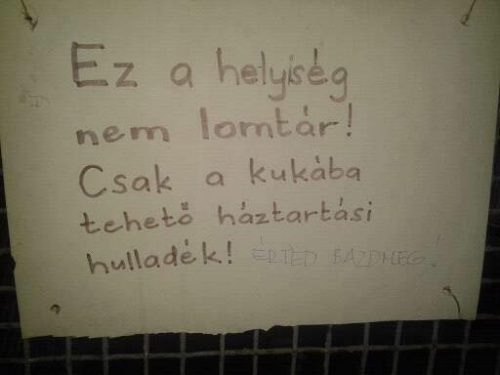 Ez a helyiség
nem lomtár!
Csak a kukába
tehető háztartási
hulladék! ÉRTED BAZDMEG!